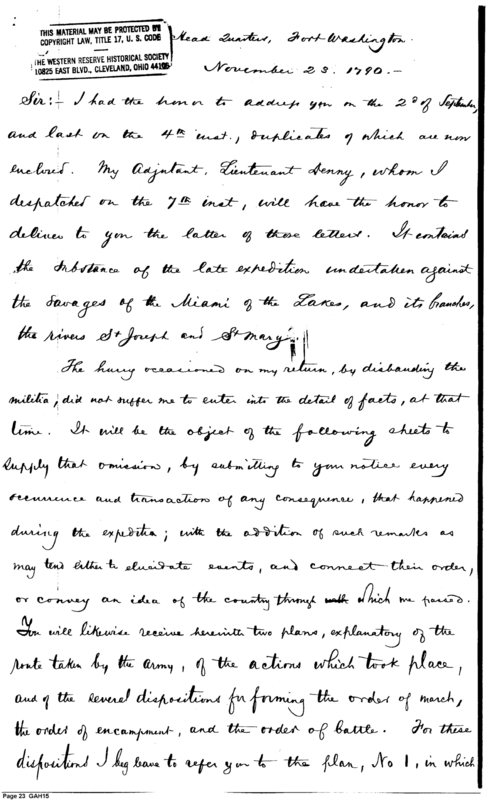 THIS MATERIAL MAY BE PROTECTED BY
COPYRIGHT LAW, TITLE 17, U. S. CODE
THE WESTERN RESERVE HISTORICAL SOCIETY
10825 EAST BLVD., CLEVELAND, OHIO 44106
Head Quarters, Fort Washington.
November 23. 1790.-
Sir:- I had the honor to address you on the 2d of September,
and last on the 4th inst., duplicates of which are now
enclosed. My Adjutant, Lieutenant Denny, whom I
despatched on the 7th inst, will have the honor to
deliver to you the latter of those letters. It contains
the substance of the late expedition undertaken against
the savages of the Miami of the Lakes, and its branches,
the rivers St Joseph and St Mary.
The hurry occasioned on my return, by disbanding the
militia, did not suffer me to enter into the detail of facts, at that
time. It will be the object of the following sheets to
supply that omission, by submitting to your notice every
occurrence and transaction of any consequence, that happened
during the expedition; with the addition of such remarks as
may tend either to elucidate events, and connect their order,
or convey an idea of the country through which we passed.
You will likewise receive herewith two plans, explanatory of the
route taken by the army, of the actions which took place,
and of the several dispositions for forming the order of march,
the order of encampment, and the order of battle. For these
dispositions I beg leave to refer you to the plan, No 1, in which
Page 23 GAH15